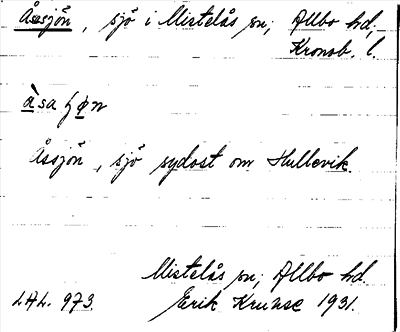 Åssjön, sjö i Mistelås sn; Allbo hd;
Kronob. l.
Åssjön, sjö sydost om Hullevik.
Mistelås sn; Allbo hd.
LAL. 973. Erik Kruuse 1931.